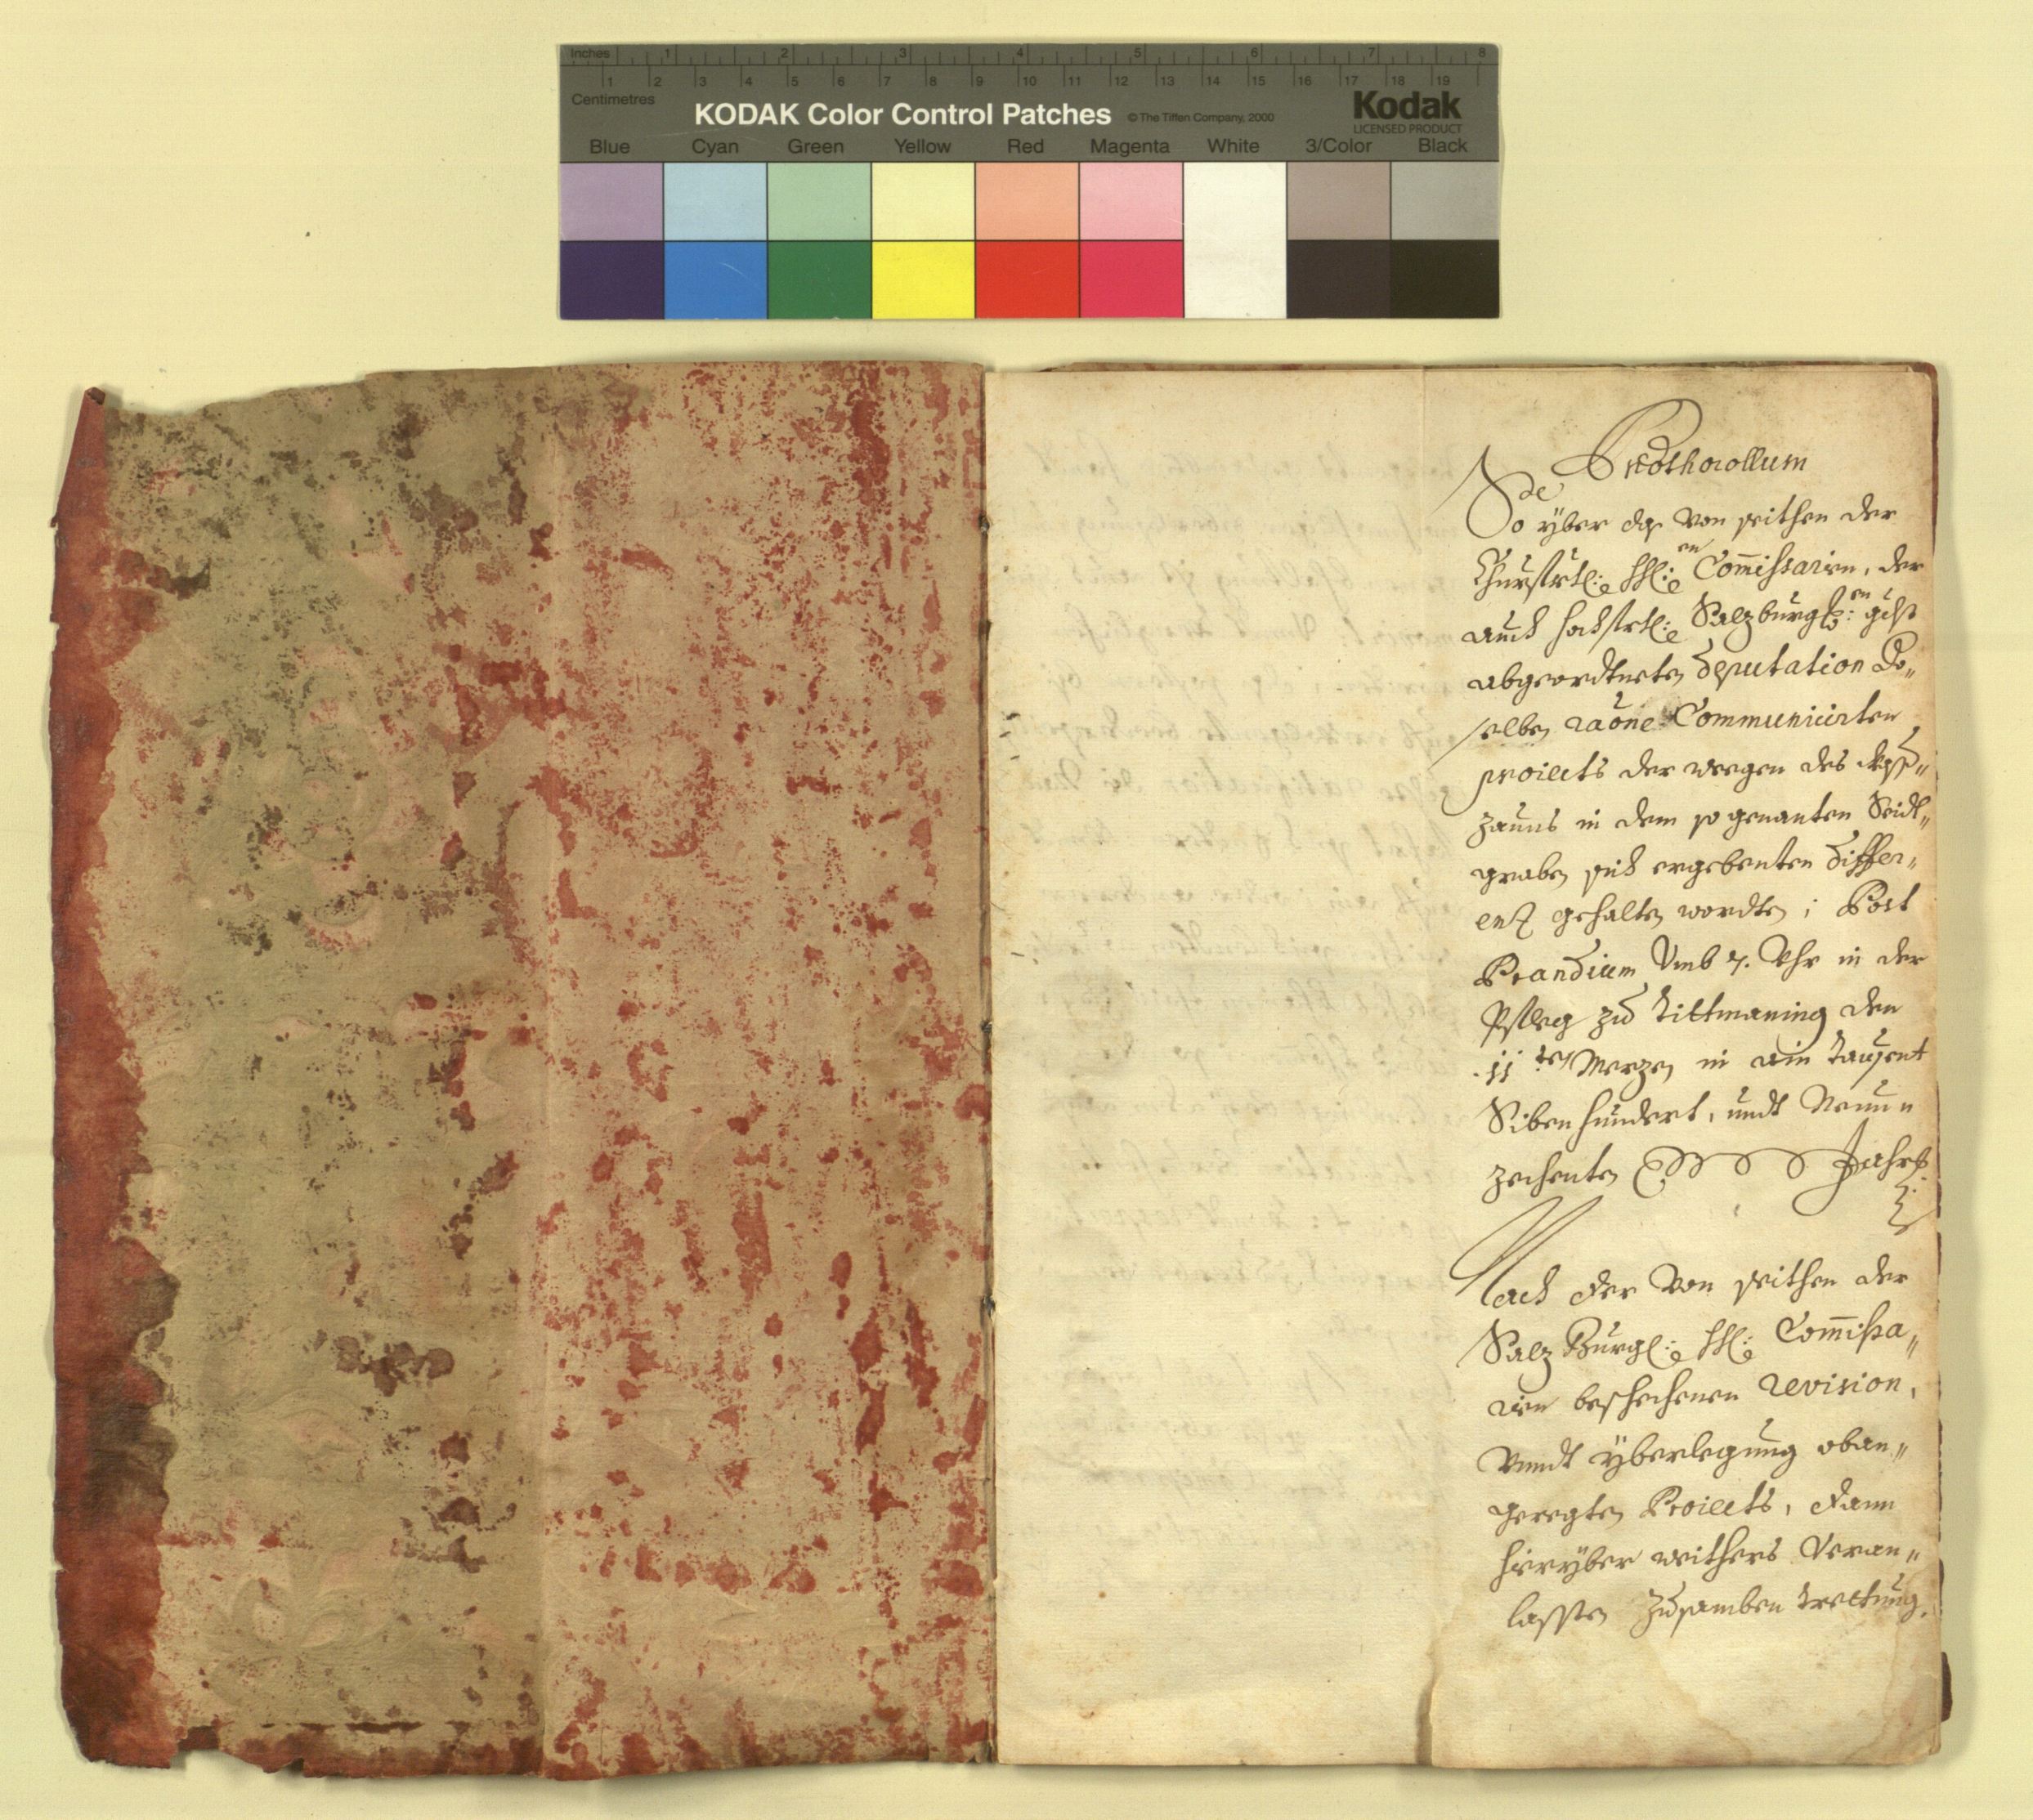 Inches 1 2 3 4 5 6 7 8
1 2 3 4 5 6 7 8 9 10 11 12 13 14 15 16 17 18 19
Centimetres
KODAK Color Control Patches © The Tiffen Company, 2000 Kodak
LICENSED PRODUCT
Blue Cyan Green Yellow Red Magenta White 3/Color Black
Prothocollum
de
So yber daß von seithen der
Churfrtl: HH:en Commissarien, der
auch hochfrtl: Salzburg: en
abgeordtneten Deputation Do„
selben raone Communicirten
proiects der wegen des
zauns in dem so genanten Seidl„
graben sich ergebenten differ„
enz gehalten wordten; Post
Prandium Umb 7. Uhr in der
Pfleg zu Tittmaning den
11ten Merzen in ain Tausent
Sibenhundert, undt Neun
zechenten Jahrs.
Nach der von seithen der
SalzBurgl: HH: Commissa„
rien beschechenen revision,
Vundt yberlegung oban„
geregten Proiects, dann
hieryber weithers Veran„
lassten Zusamben trettung,